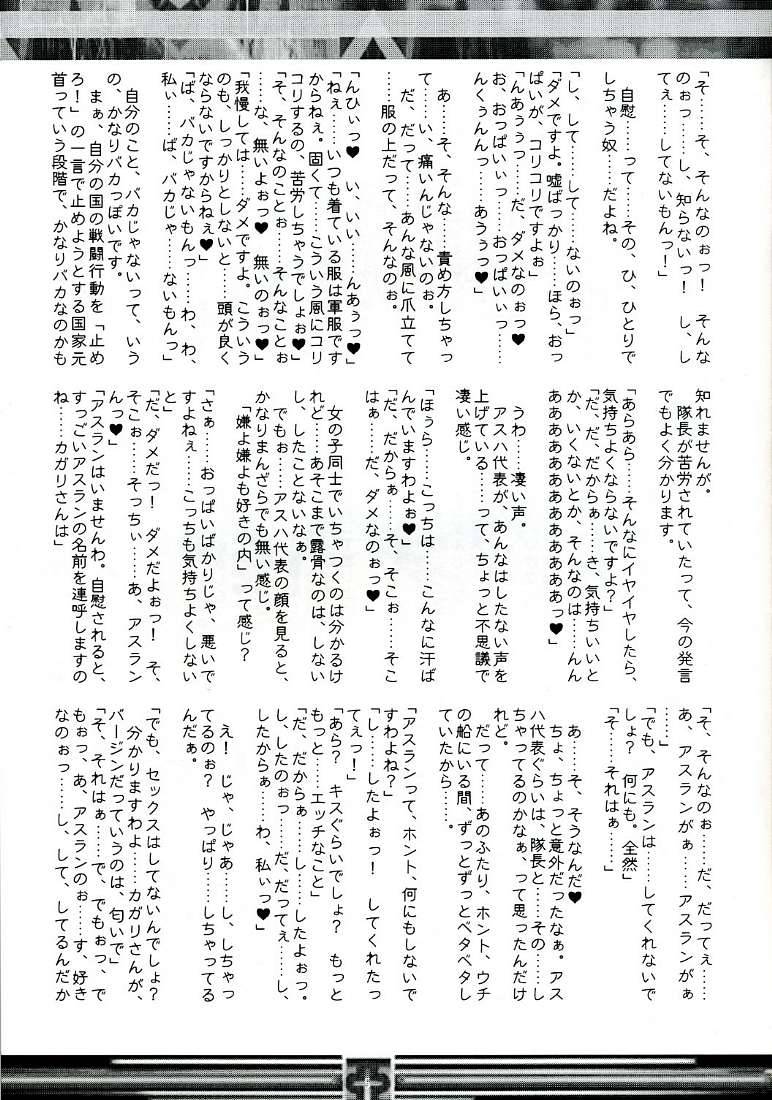 「そ……そ、そんなのぉっ！　そんな
のぉっ……し、知らないっ！　し、し
てぇ……してないもんっ！」
　自慰……って……その、ひ、ひとりで
しちゃう奴……だよね。
「し、して……して……ないのぉっ」
「ダメですよ。嘘ばっかり……ほら、おっ
ぱいが、コリコリですよぉ」
「んあぅぅっ……だ、ダメなのぉっ♥
お、おっぱいぃっ……おっぱいぃっ……
んくぅんんっ……あうぅっ♥」
　あ……そ、そんな……責め方しちゃっ
て……い、痛いんじゃないのぉ。
　だ、だって……あんな風に爪立てて
……服の上だって、そんなのぉ。
「んひぃっ♥　い、いい……んあぅっ♥
「ねぇ……いつも着ている服は軍服です
からねぇ。固くて……こういう風にコリ
コリするの、苦労しちゃうでしょぉ♥」
「そ、そんなのことぉ……そんなことぉ
……な、無いよぉっ♥　無いのぉっ♥」
「我慢しては……ダメですよ。こういう
のも、しっかりとしないと……頭が良く
ならないですからねぇ♥」
「ば、バカじゃないもんっ……わ、わ、
私ぃ……ば、バカじゃ……ないもんっ」
　自分のこと、バカじゃないって、いう
の、かなりバカっぽいです。
　まぁ、自分の国の戦闘行動を「止め
ろ！」の一言で止めようとする国家元
首っていう段階で、かなりバカなのかも
知れませんが。
　隊長が苦労されていたって、今の発言
でもよく分かります。
「あらあら……そんなにイヤイヤしたら、
気持ちよくならないですよ？」
「だ、だ、だからぁ……き、気持ちいいと
か、いくないとか、そんなのは……んん
ああああああああああああああっ♥」
　うわ……凄い声。
　アスハ代表が、あんなはしたない声を
上げている……って、ちょっと不思議で
凄い感じ。
「ほぅら……こっちは……こんなに汗ば
んでいますわよぉ♥」
「だ、だからぁ……そ、そこぉ……そこ
はぁ……だ、ダメなのぉっ♥」
　女の子同士でいちゃつくのは分かるけ
れど……あそこまで露骨なのは、しない
し、したことないなぁ。
　でもぉ……アスハ代表の顔を見ると、
かなりまんざらでも無い感じ。
　「嫌よ嫌よも好きの内」って感じ？
「さぁ……おっぱいばかりじゃ、悪いで
すよねぇ……こっちも気持ちよくしない
と」
「だ、ダメだっ！　ダメだよぉっ！　そ、
そこぉ……そっちぃ……あ、アスラン
んっ♥」
「アスランはいませんわ。自慰されると、
すっごいアスランの名前を連呼しますの
ね……カガリさんは」
「そ、そんなのぉ……だ、だってぇ……
あ、アスランがぁ……アスランがぁ
……」
「でも、アスランは……してくれないで
しょ？　何にも。全然」
「そ……それはぁ……」
　あ……そ、そうなんだ♥
　ちょ、ちょっと意外だったなぁ。アス
ハ代表ぐらいは、隊長と……その……し
ちゃってるのかなぁ、って思ったんだけ
れど。
　だって……あのふたり、ホント、ウチ
の船にいる間、ずっとずっとベタベタし
ていたから……。
「アスランって、ホント、何にもしないで
すわよね？」
「し……したよぉっ！　してくれたっ
てぇっ！」
「あら？　キスぐらいでしょ？　もっと
もっと……エッチなこと」
「だ、だからぁ……し……したよぉっ。
し、したのぉっ……だ、だってぇ……し、
したからぁ……わ、私ぃっ♥」
　え！　じゃ、じゃあ……し、しちゃっ
てるのぉ？　やっぱり……しちゃってる
んだぁ。
「でも、セックスはしてないんでしょ？
　分かりますわよ……カガリさんが、
バージンだっていうのは、匂いで」
「そ、それはぁ……で、でもぉっ、で
もぉっ、あ、アスランのぉ……す、好き
なのぉっ……し、して、してるんだか